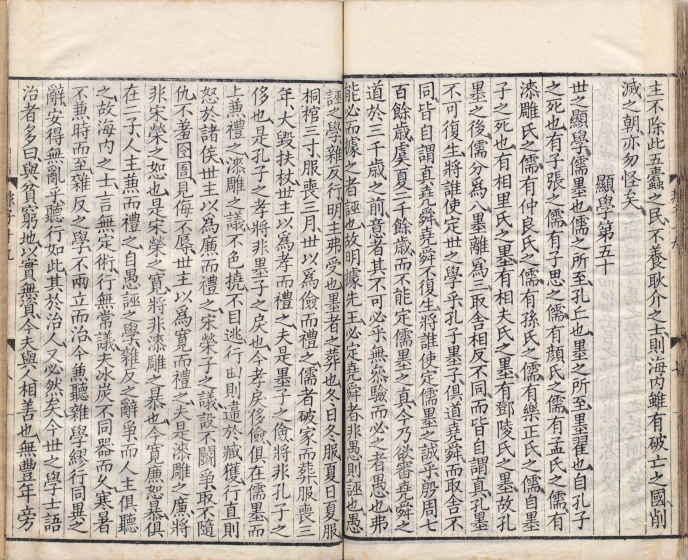 主不除此五蠹之民不養耿介之士則海內雖有破亡之國削
滅之朝亦勿怪矣
顯學第五十
世之顯學儒墨也儒之所至孔丘也墨之所至墨翟也自孔子
之死也有子張之儒有子思之儒有顏氏之儒有孟氏之儒有
漆雕氏之儒有仲良氏之儒有孫氏之儒有樂正氏之儒自墨
子之死也有相里氏之墨有相夫氏之墨有鄧陵氏之墨故孔
墨之後儒分為八墨離為三取舍相反不同而皆自謂真孔墨
不可復生將誰使定世之學乎孔子墨子俱道堯舜而取舍不
同皆自謂真堯舜堯舜不復生將誰使定儒墨之誠乎殷周七
百餘歲虞夏二千餘歲而不能定儒墨之真今乃欲審堯舜之
道於三千歲之前意者其不可必乎無參驗而必之者愚也弗
能必而據之者誣也故明據先王必定堯舜者非愚則誣也愚
誣之學雜反行明主弗受也墨者之葬也冬日冬服夏日夏服
桐棺三寸服喪三月世以為儉而禮之儒者破家而葬服喪三
年大毀扶杖世主以為孝而禮之夫是墨子之儉將非孔子之
侈也是孔子之孝將非墨子之戾也今孝戾侈儉俱在儒墨而
上兼禮之漆雕之議不色撓不目逃行曲則違於臧獲行直則
怒於諸侯世主以為廉而禮之宋榮子之議設不鬬爭取不隨
仇不羞囹圄見侮不辱世主以為寬而禮之夫是漆雕之廉將
非宋榮之恕也是宋榮之寬將非漆雕之暴也今寬廉恕暴俱
在二子人主兼而禮之自愚誣之學雜反之辭爭而人主俱聽
之故海內之士言無定術行無常議夫冰炭不同器而久寒暑
不兼時而至雜反之學不兩立而治今兼聽雜學繆行同異之
辭安得無亂乎聽行如此其於治人又必然矣今世之學士語
治者多曰與貧窮地以實無資今夫與人相善也無豐年旁